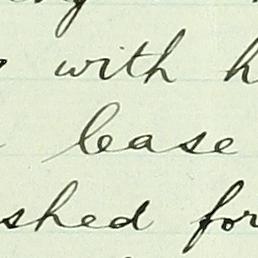 with h
lease
shed for